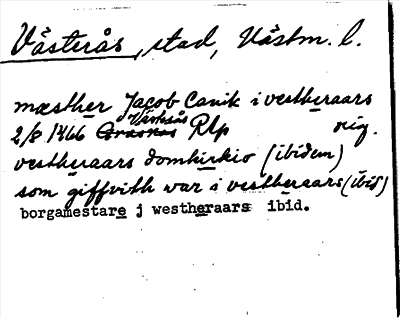 Västerås, stad, Västm. l.
mæsther Jacob Canik i vestheraars
Västerås
2/8 1466 RAp orig.
vestheraars domkirkio (ibidem)
som giffvith war i vestheraars (ibid)
borgamestare j westheraars ibid.